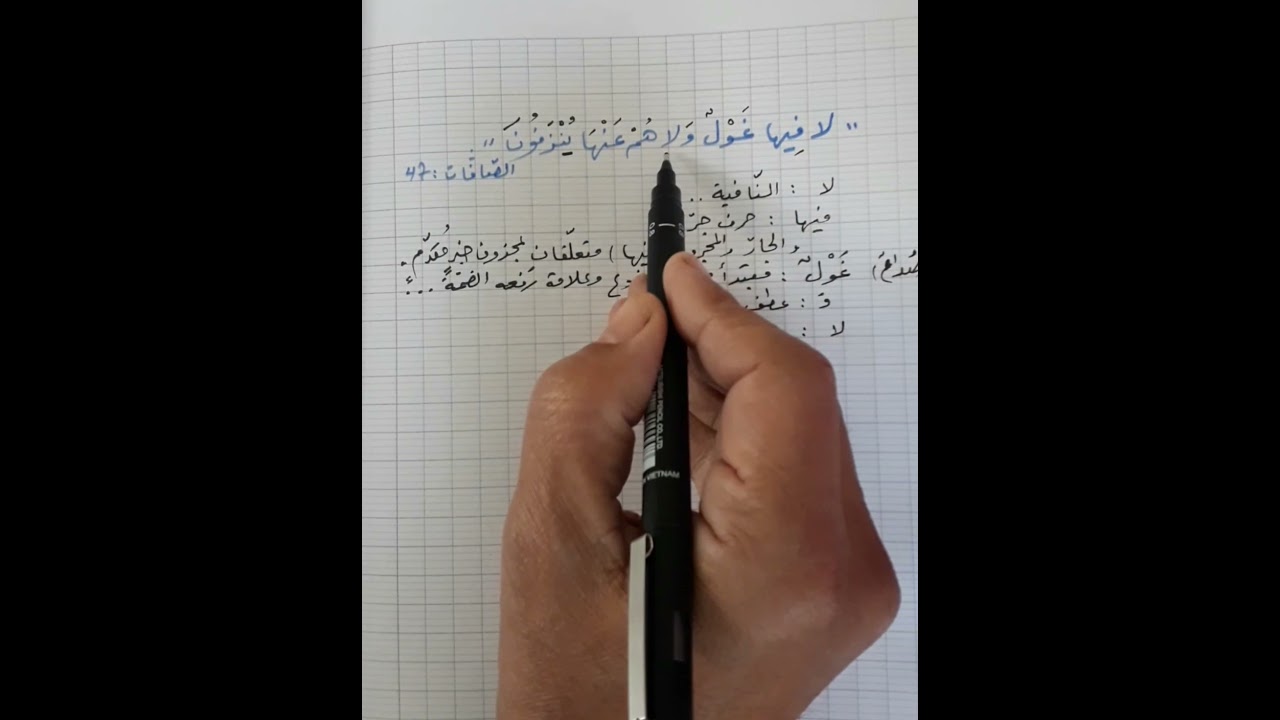 " لا فِيها غَوْلٌ وَلا هُمْ عَنْهَا يُنْزَفُونَ "
الصّافّات : 47
لا : النّافية ..
فيها : حرف جرّ
والجارّ والمجرو فيها) متعلّقان بمحذوف خبر مُقدّم .
(صُداع) غَوْلٌ : مبتدأ وع وعلامة رَفعه الضمّةُ ...
وَ : عطف
لا :
VIETNAM